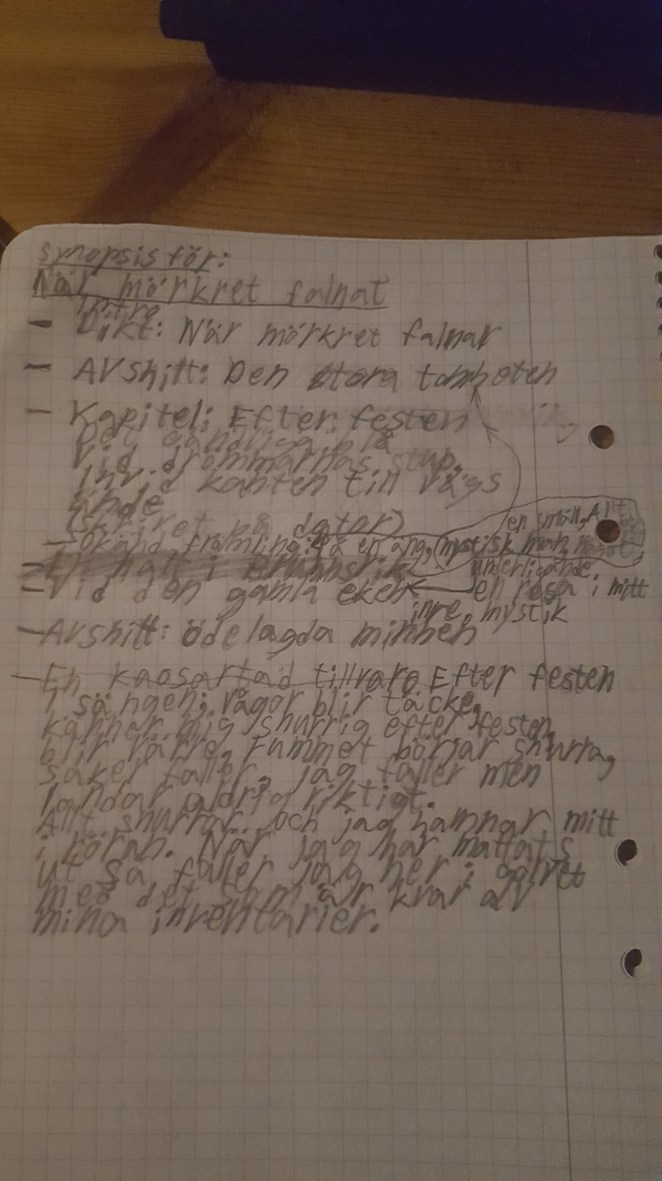 Synopsis för:
När mörkret falnat
Intro
- Dikt: När mörkret falnar
- Avshitt: Den stora tomheten
- Kapitel: Efter festen
Det oändliga blå
Vid drömmarnas stup,
Invid kanten till vägs
ände
(skrivet på dator)
- Okänd främling: På en äng, (mystisk man, något,
en smäll, Allt
underliggande,
- Vid den gamla eken
en resa i mitt
inre, mystik
- Avshitt: ödelagda minnen
- En kaosartad tillvaro, Efter festen
i sängen; vågor blir täcke,
känner mig snurrig efter festen,
blir värre, rummet börjar snurra,
saker faller, jag faller men
landar aldrig riktigt.
Allt snurrar och jag hamnar mitt
i röran. När jag har mattats
ut så faller jag ner i golvet
med det som är kvar av
mina inventarier.